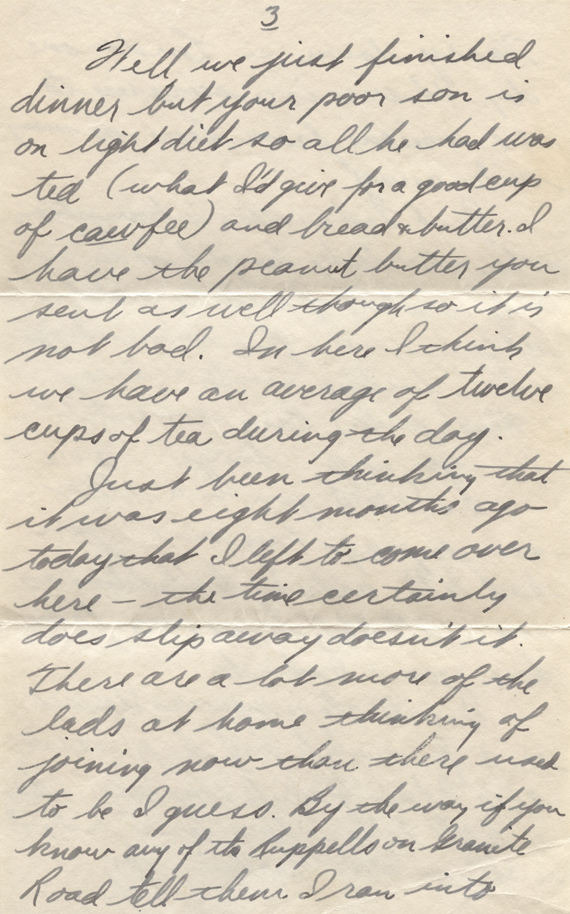 3
Well we just finished
dinner but your poor son is
on light diet so all he had was
tea (what I'd give for a good cup
of cawfee) and bread & butter. I
have the peanut butter you
sent as well though so it is
not bad. In here I think
we have an average of twelve
cups of tea during the day.
Just been thinking that
it was eight months ago
today that I left to come over
here – the time certainly
does slip away doesn't it.
There are a lot more of the
lads at home thinking of
joining now than there used
to be I guess. By the way if you
know any of the Ruppells on Granite
Road tell them I ran into